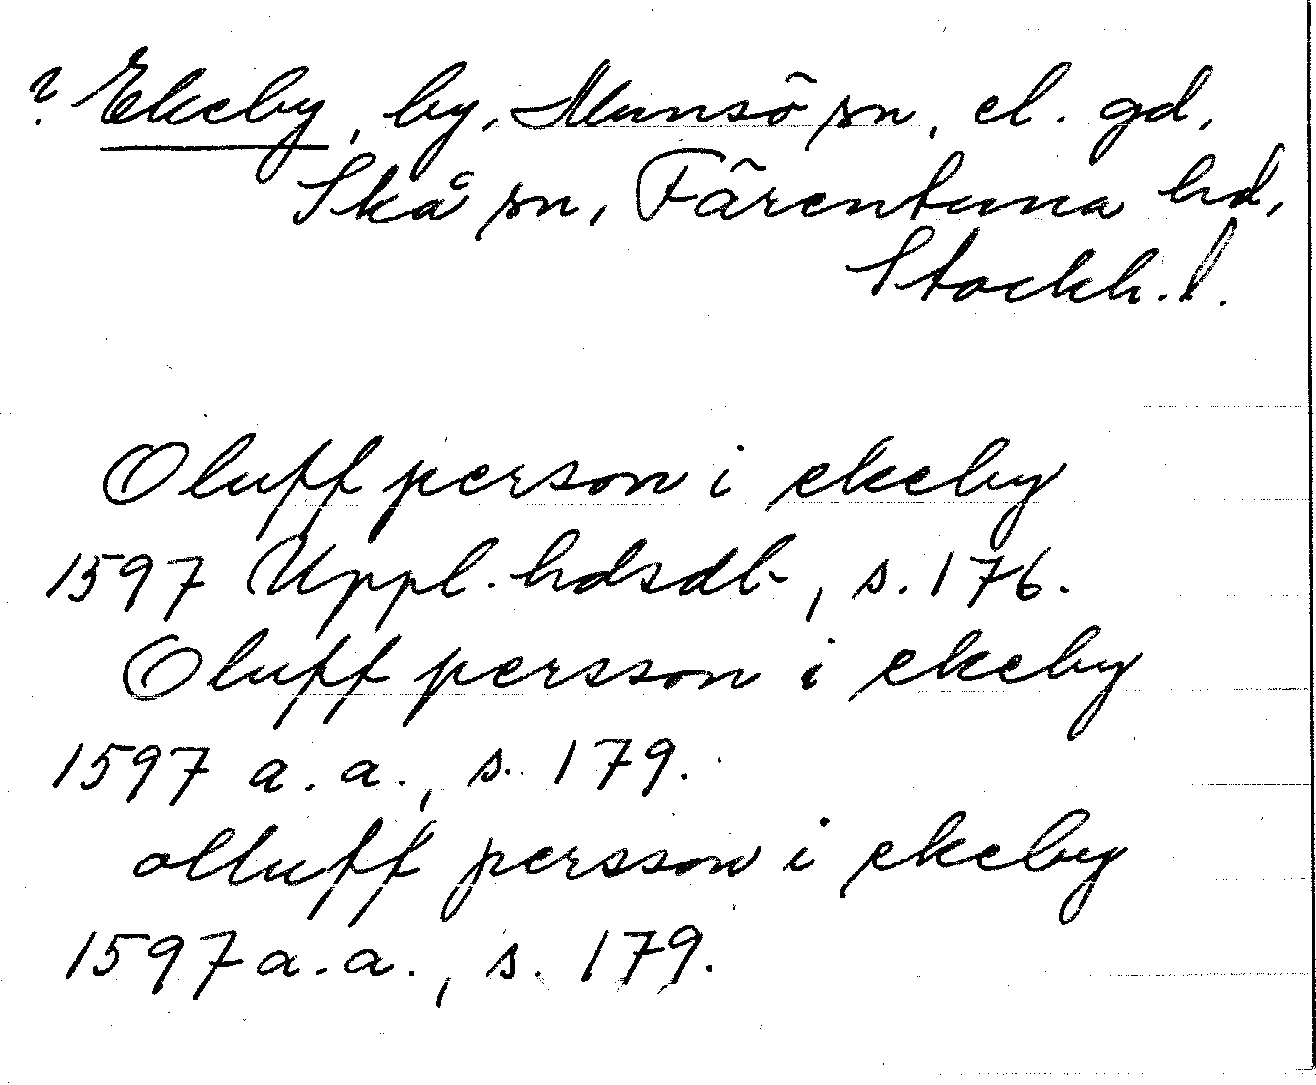 ? Ekeby, by, Munsö sn, el. gd,
Skå sn, Färentuna hd,
Stockh. l.
Oluff person i ekeby
1597 Uppl. hdsdb, s. 176.
Oluff persson i ekeby
1597 a. a., s. 179.
olluff persson i ekeby
1597 a. a., s. 179.